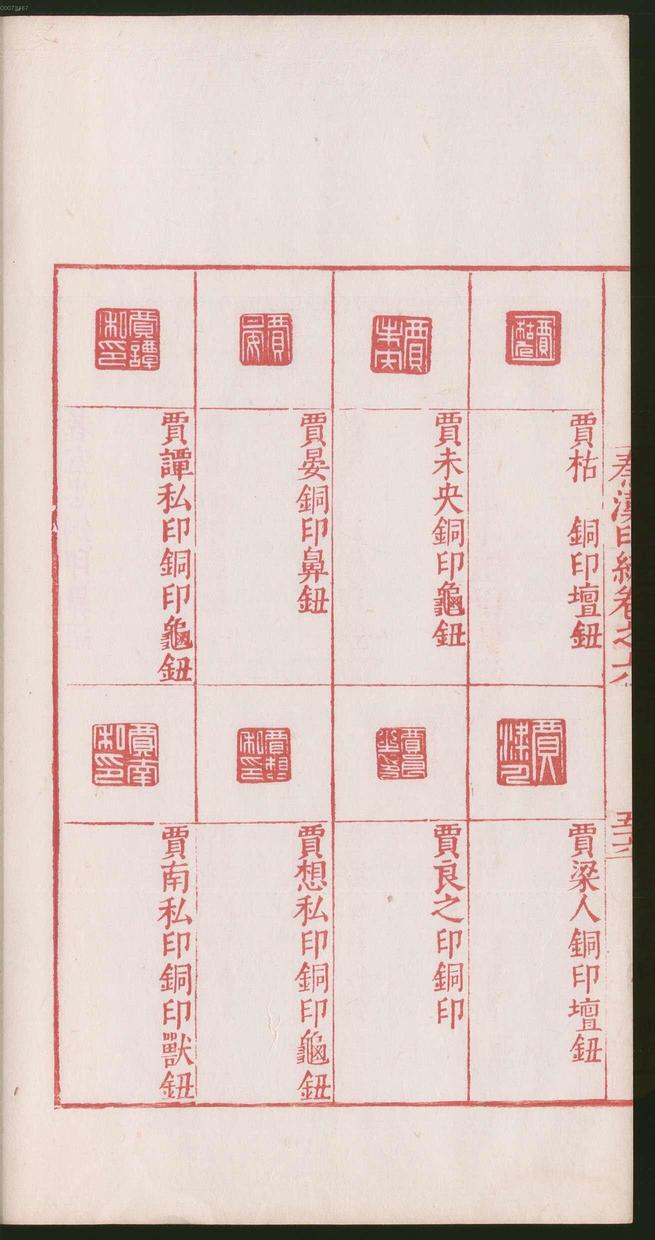 00073467
秦漢印統卷之六
五六
賈枯　銅印壇鈕
賈未央銅印龜鈕
賈晏銅印鼻鈕
賈譚私印銅印龜鈕
賈梁人銅印壇鈕
賈良之印銅印
賈想私印銅印龜鈕
賈南私印銅印獸鈕
賈未央
賈晏
賈譚私印
賈南私印